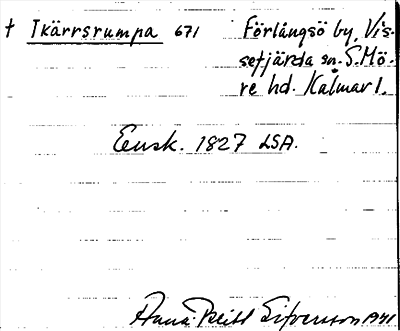 † Ikärrsrumpa 671 Förlångsö by, Vis-
sefjärda sn. S. Mö-
re hd. Kalmar l.
Ensk. 1827 LSA.
Anna-Britt Sifversson 1941